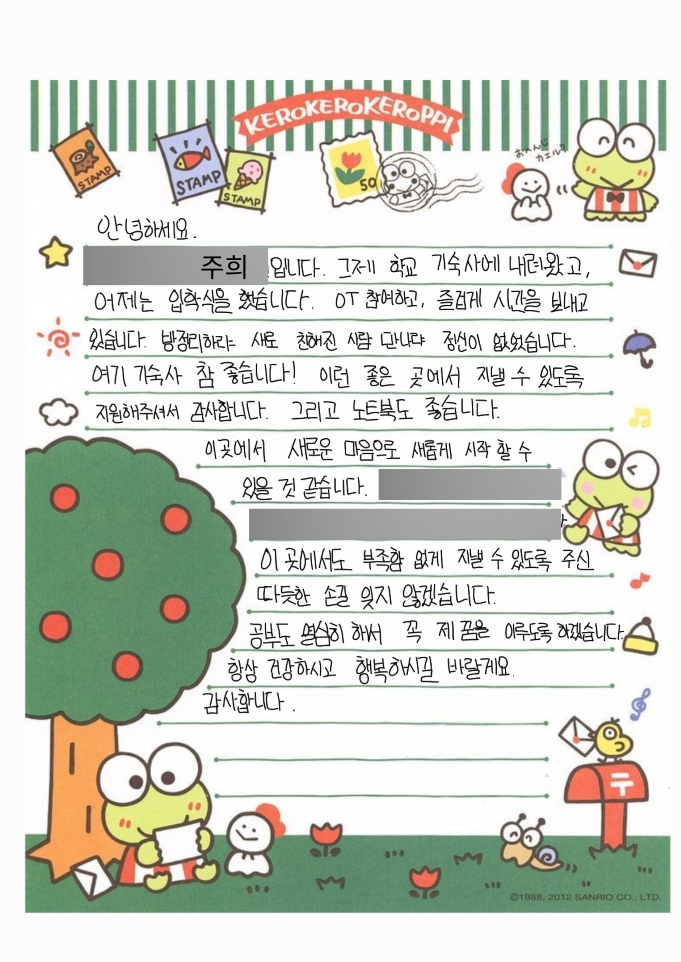 KEROKEROKEROPPI
STAMP
STAMP
STAMP
50
안녕하세요.
주희
입니다. 그제 학교 기숙사에 내려왔고,
어제는 입학식을 했습니다. OT 참여하고, 즐겁게 시간을 보내고
있습니다. 방정리하랴 새로 친해진 사람 만나랴 정신이 없었습니다.
여기 기숙사 참 좋습니다! 이런 좋은 곳에서 지낼 수 있도록
지원해주셔서 감사합니다. 그리고 노트북도 좋습니다.
이곳에서 새로운 마음으로 새롭게 시작 할 수
있을 것 같습니다.
이 곳에서도 부족함 없게 지낼 수 있도록 주신
따듯한 손길 잊지 않겠습니다.
공부도 열심히 해서 꼭 제 꿈을 이루도록 하겠습니다.
항상 건강하시고 행복하시길 바랄게요.
감사합니다.
©1988, 2012 SANRIO CO., LTD.